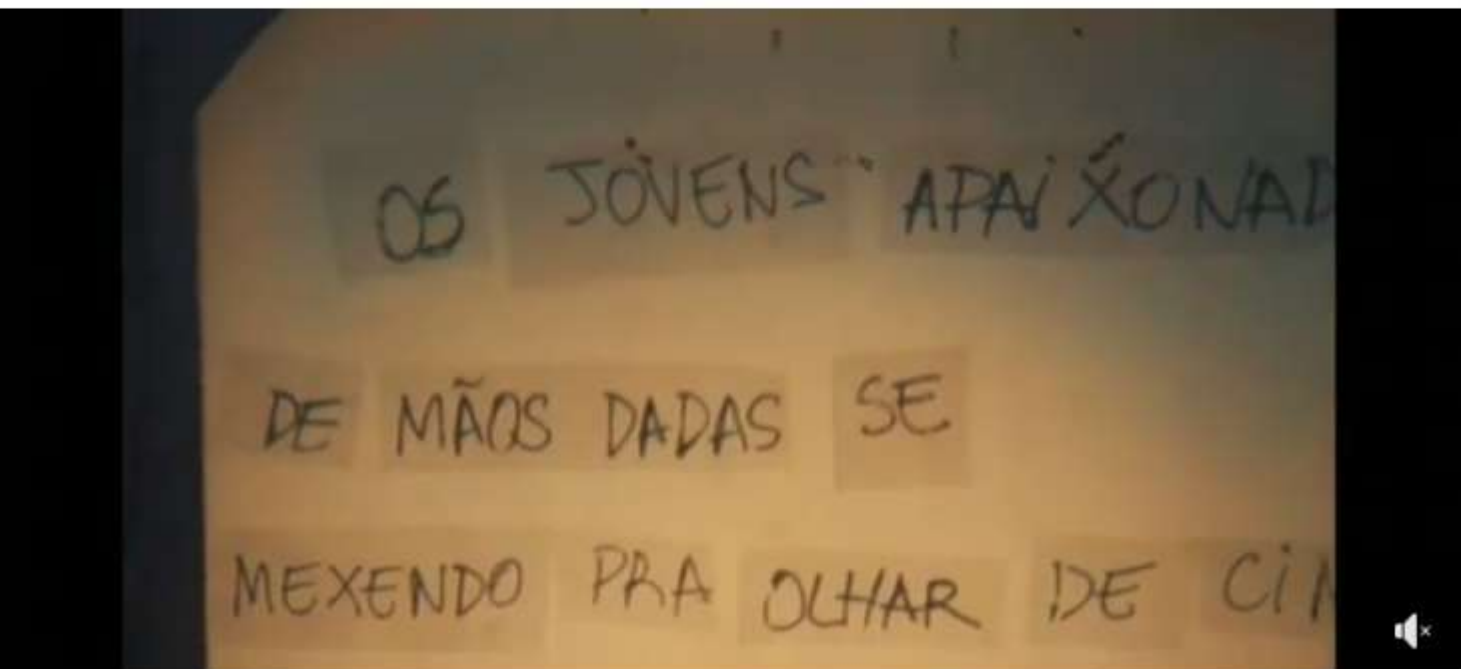 OS JOVENS APAIXONAD
DE MÃOS DADAS SE
MEXENDO PRA OLHAR DE CIM